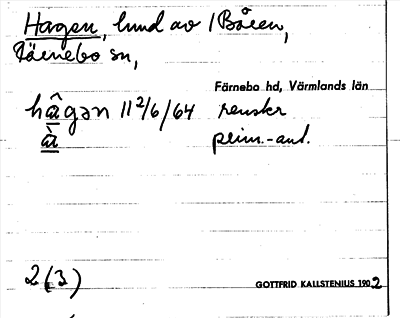 Hagen, lund av 1 Båeen,
Räenebo sn,
Färnebo hd, Värmlands län
hâgən 11 2/6/64 renskr
à prim.-ant.
2(3)
GOTTFRID KALLSTENIUS 1902